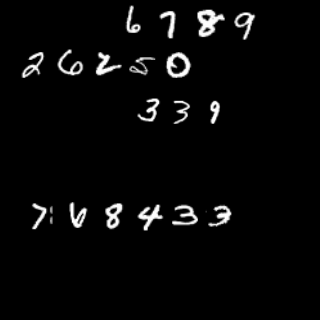 6789
26250
339
7168433